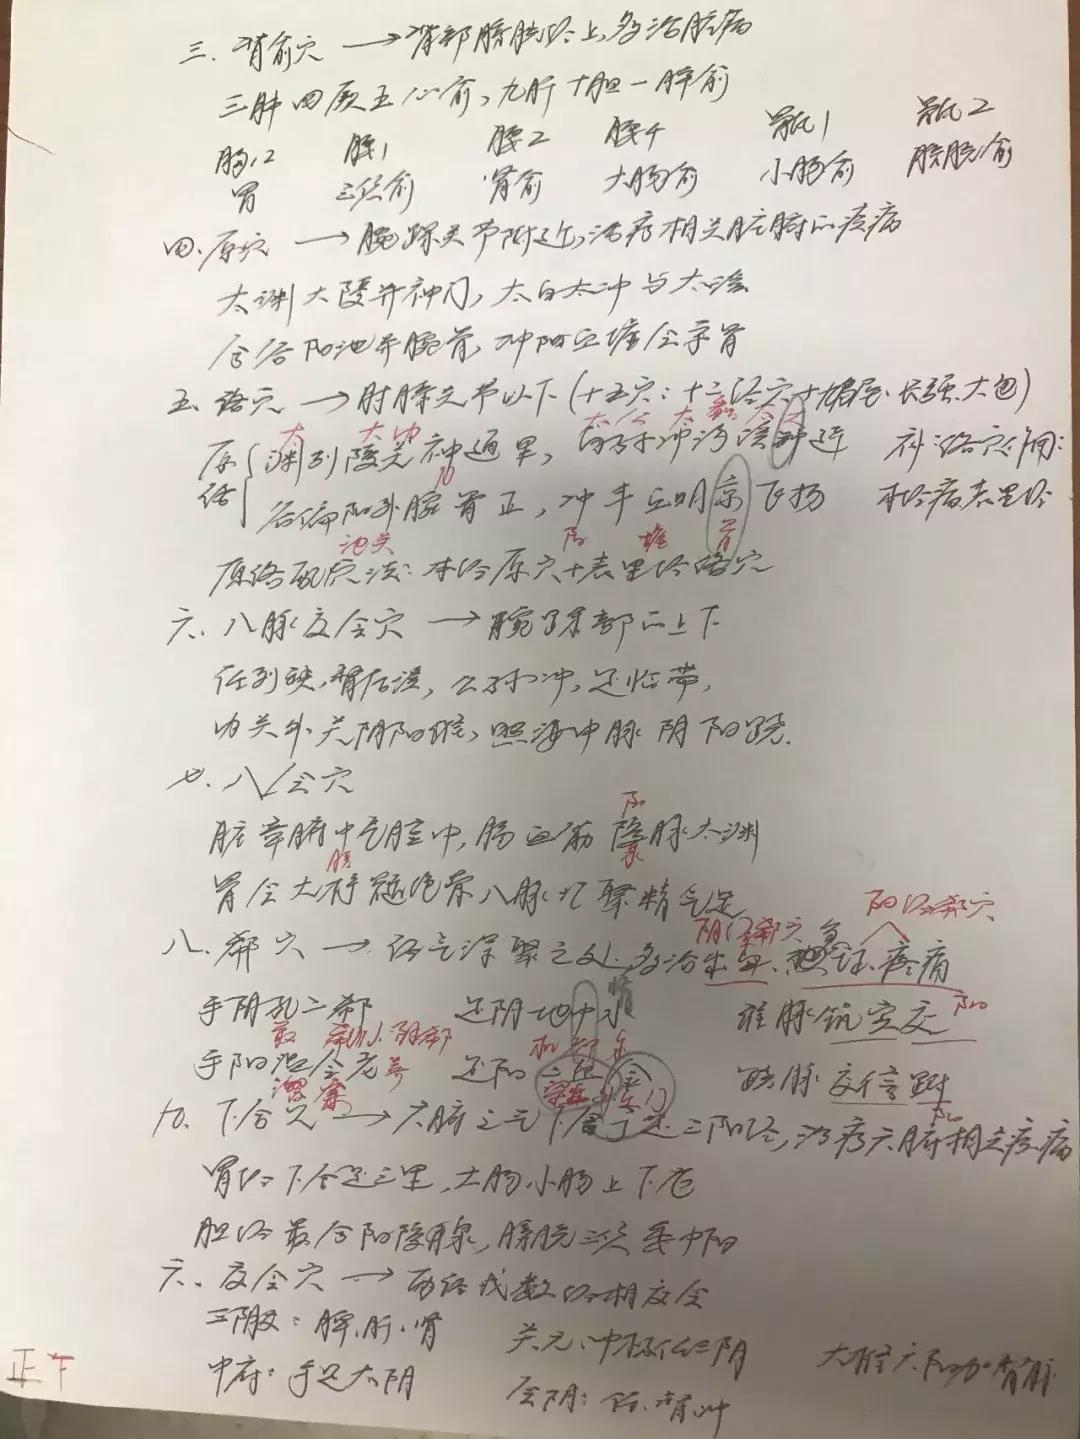 三、背俞穴 → 背部膀胱经上，多治脏病
三肺四厥五心俞，九肝十胆一脾俞
胸12 腰1 腰2 腰4 骶1 骶2
胃 三焦俞 肾俞 大肠俞 小肠俞 膀胱俞
四、原穴 → 腕踝关节附近，治疗相关脏腑的疾病
太渊大陵并神门，太白太冲与太溪
合谷阳池并腕骨，冲阳丘墟会京骨
五、络穴 → 肘膝关节以下（十五穴：十二经穴+鸠尾、长强、大包）
大 大内 太公 太
原络 渊列陵关神通里，白孙冲沟溪钟逆 补：络穴作用：
谷偏阳外腕骨正，冲丰丘明京飞扬 本经病表里经
池关 阳 墟 骨
原络配穴法：本经原穴+表里经络穴
六、八脉交会穴 → 腕踝部的上下
任列缺，督后溪，公孙冲，足临带，
内关外关阴阳维，照海申脉阴阳跷.
七、八会穴
阳
脏章腑中气膻中，膈血筋陵脉太渊
泉
骨会大杼髓绝骨八脉汇聚精气足
阳经郄穴
阴经郄穴 急
八、郄穴 → 经气深聚之处，多治出血、证、疼痛
手阴孔二郄 足阴地中水 维脉筑宾交 阳
最 郄门、阴郄
手阳温会老 养 足阳 跷脉交信跗
溜 梁丘 外丘 金门 阳
九、下合穴 → 六腑之气下合于足三阳经，治疗六腑相关疾病
胃经下合足三里，大肠小肠上下巨
胆经最合阳陵泉，膀胱三焦委中阳
六、交会穴 → 两经或数经相交会
三阴交：脾、肝、肾 关元、中极任三阴 大椎六阳加督脉
中府：手足太阴 会阴：任、督、冲
正